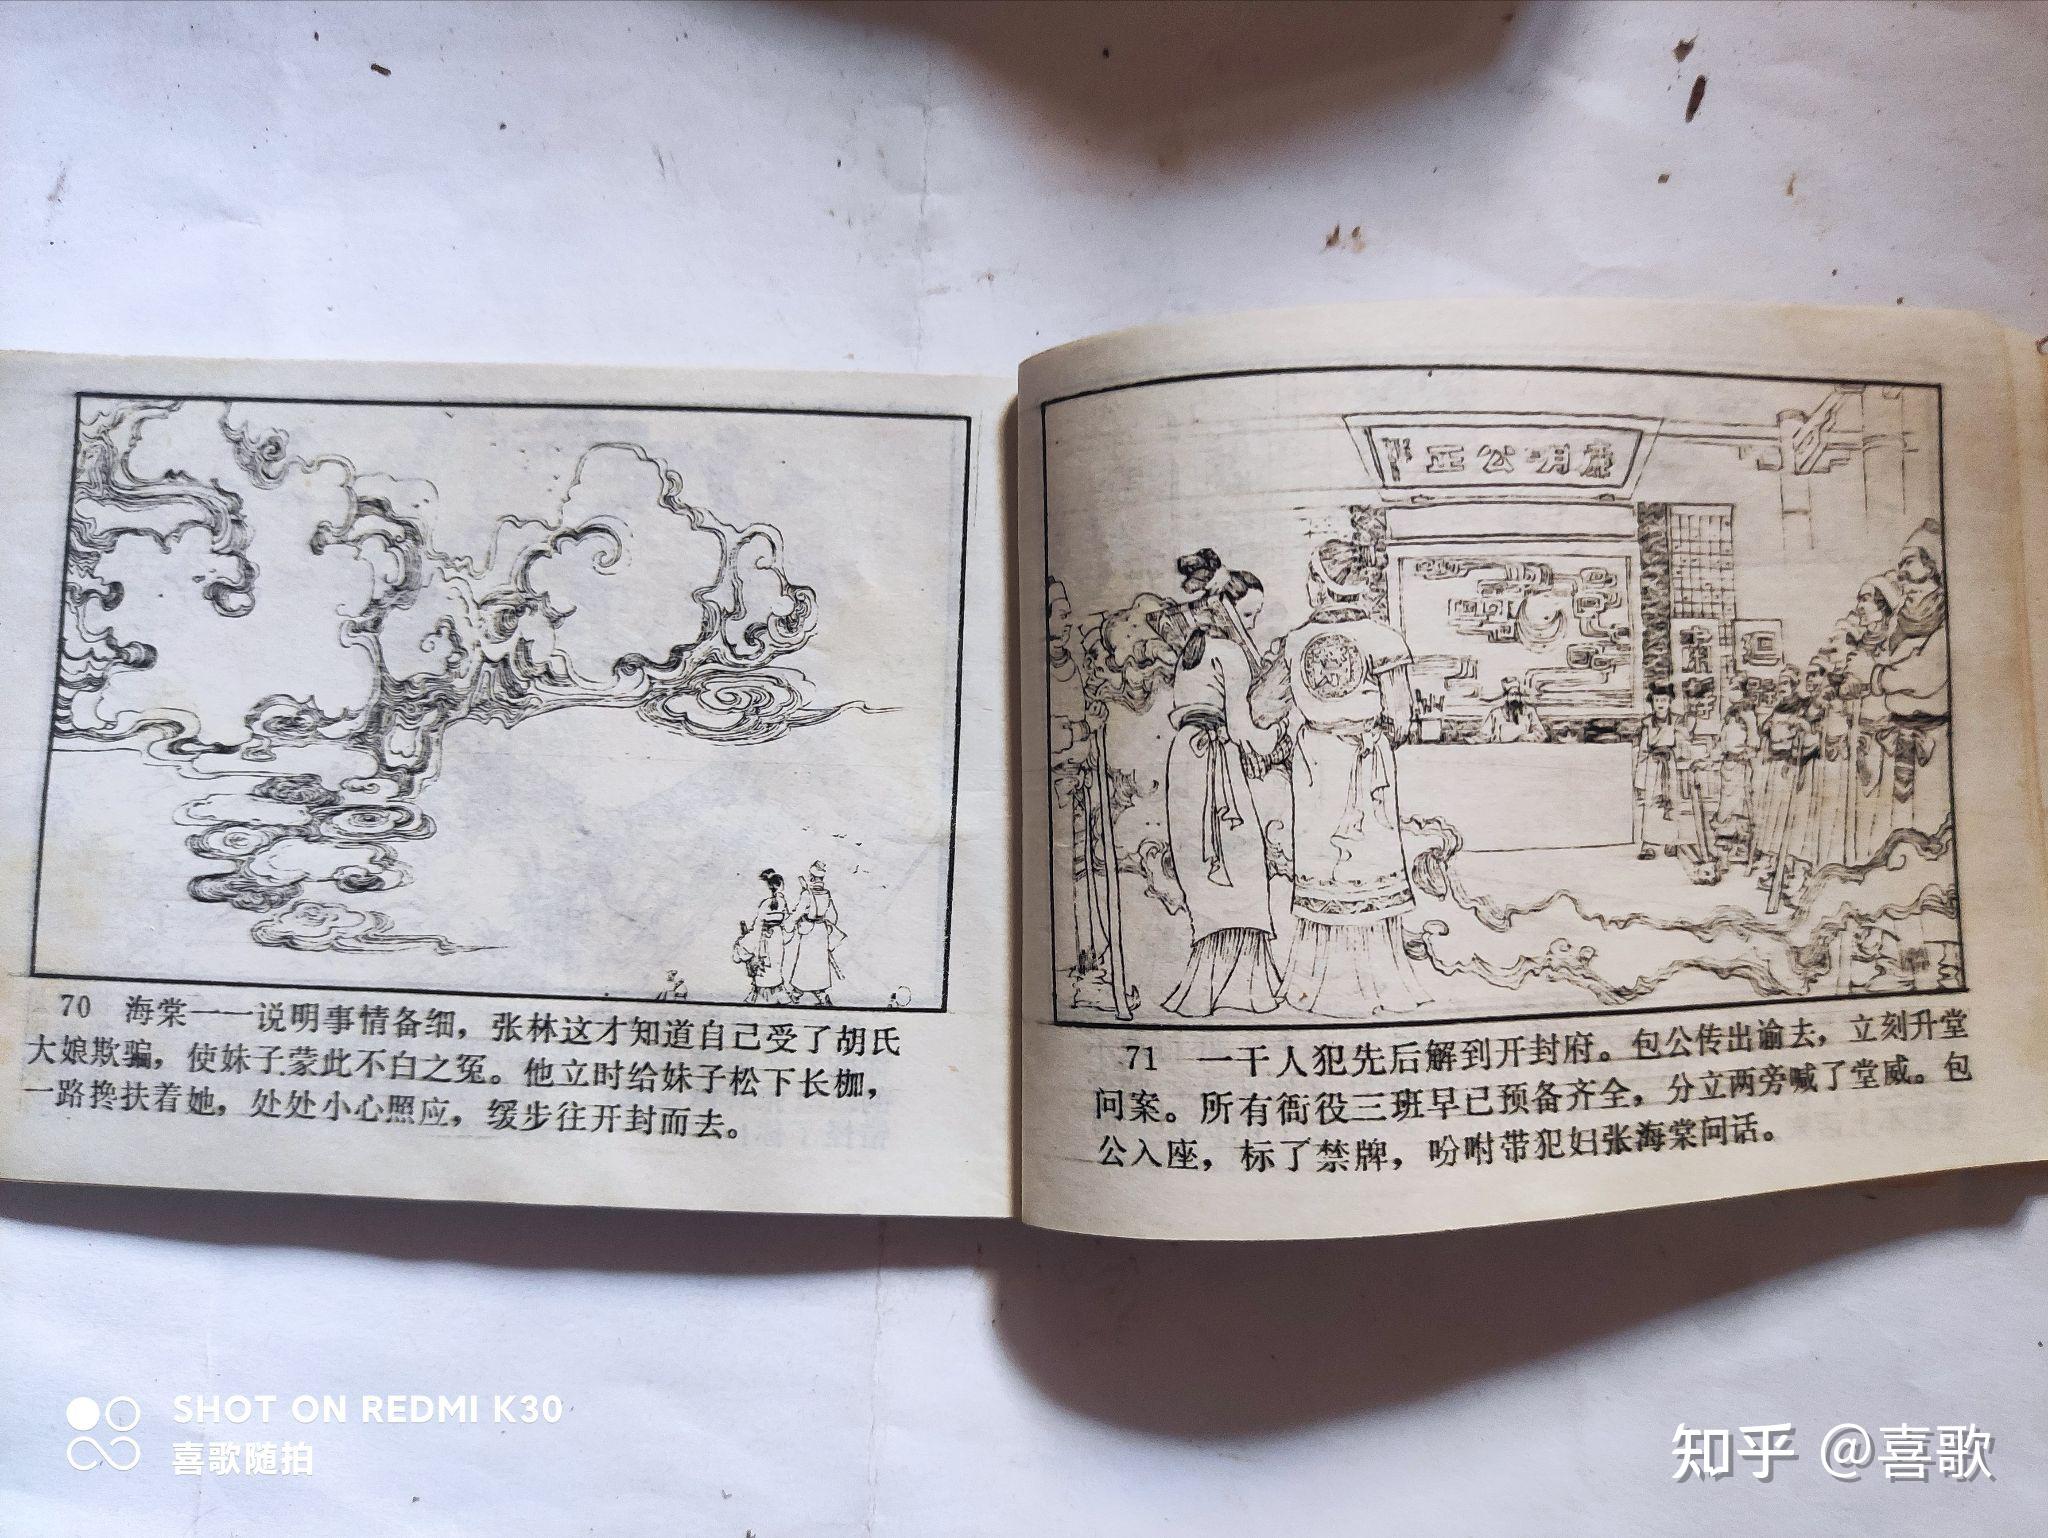 正公明廉
回避
肃静
70 海棠一一说明事情备细，张林这才知道自己受了胡氏
大娘欺骗，使妹子蒙此不白之冤。他立时给妹子松下长枷，
一路搀扶着她，处处小心照应，缓步往开封而去。
71 一干人犯先后解到开封府。包公传出谕去，立刻升堂
问案。所有衙役三班早已预备齐全，分立两旁喊了堂威。包
公入座，标了禁牌，吩咐带犯妇张海棠问话。
SHOT ON REDMI K30
喜歌随拍
知乎 @喜歌